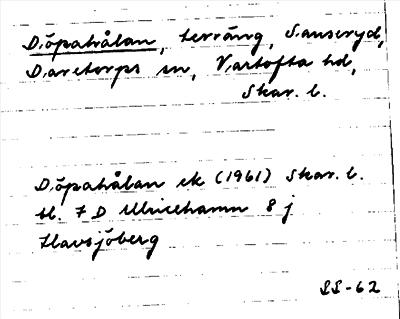 Djöpahålan, terräng, Sanseryd,
Daretorps sn, Vartofta hd,
Skar. l.
Djöpahålan ek (1961) Skar. l.
bl. 7 D Ulricehamn 8 j
Havsjöberg
SS-62